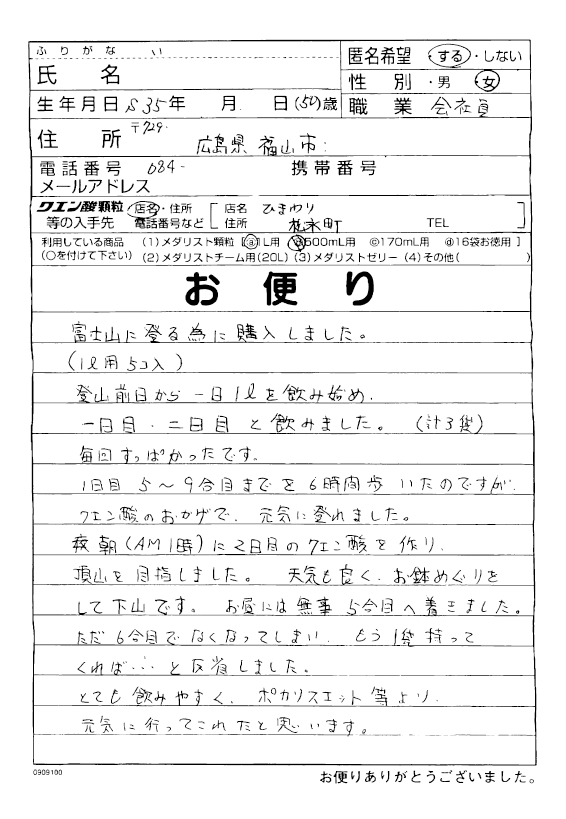 ふりがな い
匿名希望 (する)・しない
氏 名
性 別 ・男 (女)
生年月日 S35年 月 日(50)歳 職 業 会社員
住 所 〒729-
広島県 福山市
電話番号 084- 携帯番号
メールアドレス
クエン酸顆粒 (店名)・住所 [ 店名 ひまわり
等の入手先 電話番号など 住所 松永町 TEL ]
利用している商品 (1)メダリスト顆粒 [ⓐ1L用 ⓑ500mL用 ⓒ170mL用 ⓓ16袋お徳用]
(○を付けて下さい) (2)メダリストチーム用(20L) (3)メダリストゼリー (4)その他( )
お便り
富士山に登る為に購入しました。
(1ℓ用5コ入)
登山前日から一日1ℓを飲み始め、
一日目・二日目と飲みました。(計3袋)
毎回すっぱかったです。
1日目 5〜9合目までを6時間歩いたのですが、
クエン酸のおかげで、元気に登れました。
夜朝(AM1時)に2日目のクエン酸を作り、
頂山を目指しました。 天気も良く、お鉢めぐりを
して下山です。 お昼には無事 5合目へ着きました。
ただ 6合目でなくなってしまい、もう1袋持って
くれば・・・と反省しました。
とても飲みやすく、ポカリスエット等より、
元気に行ってこれたと思います。
0909100
お便りありがとうございました。